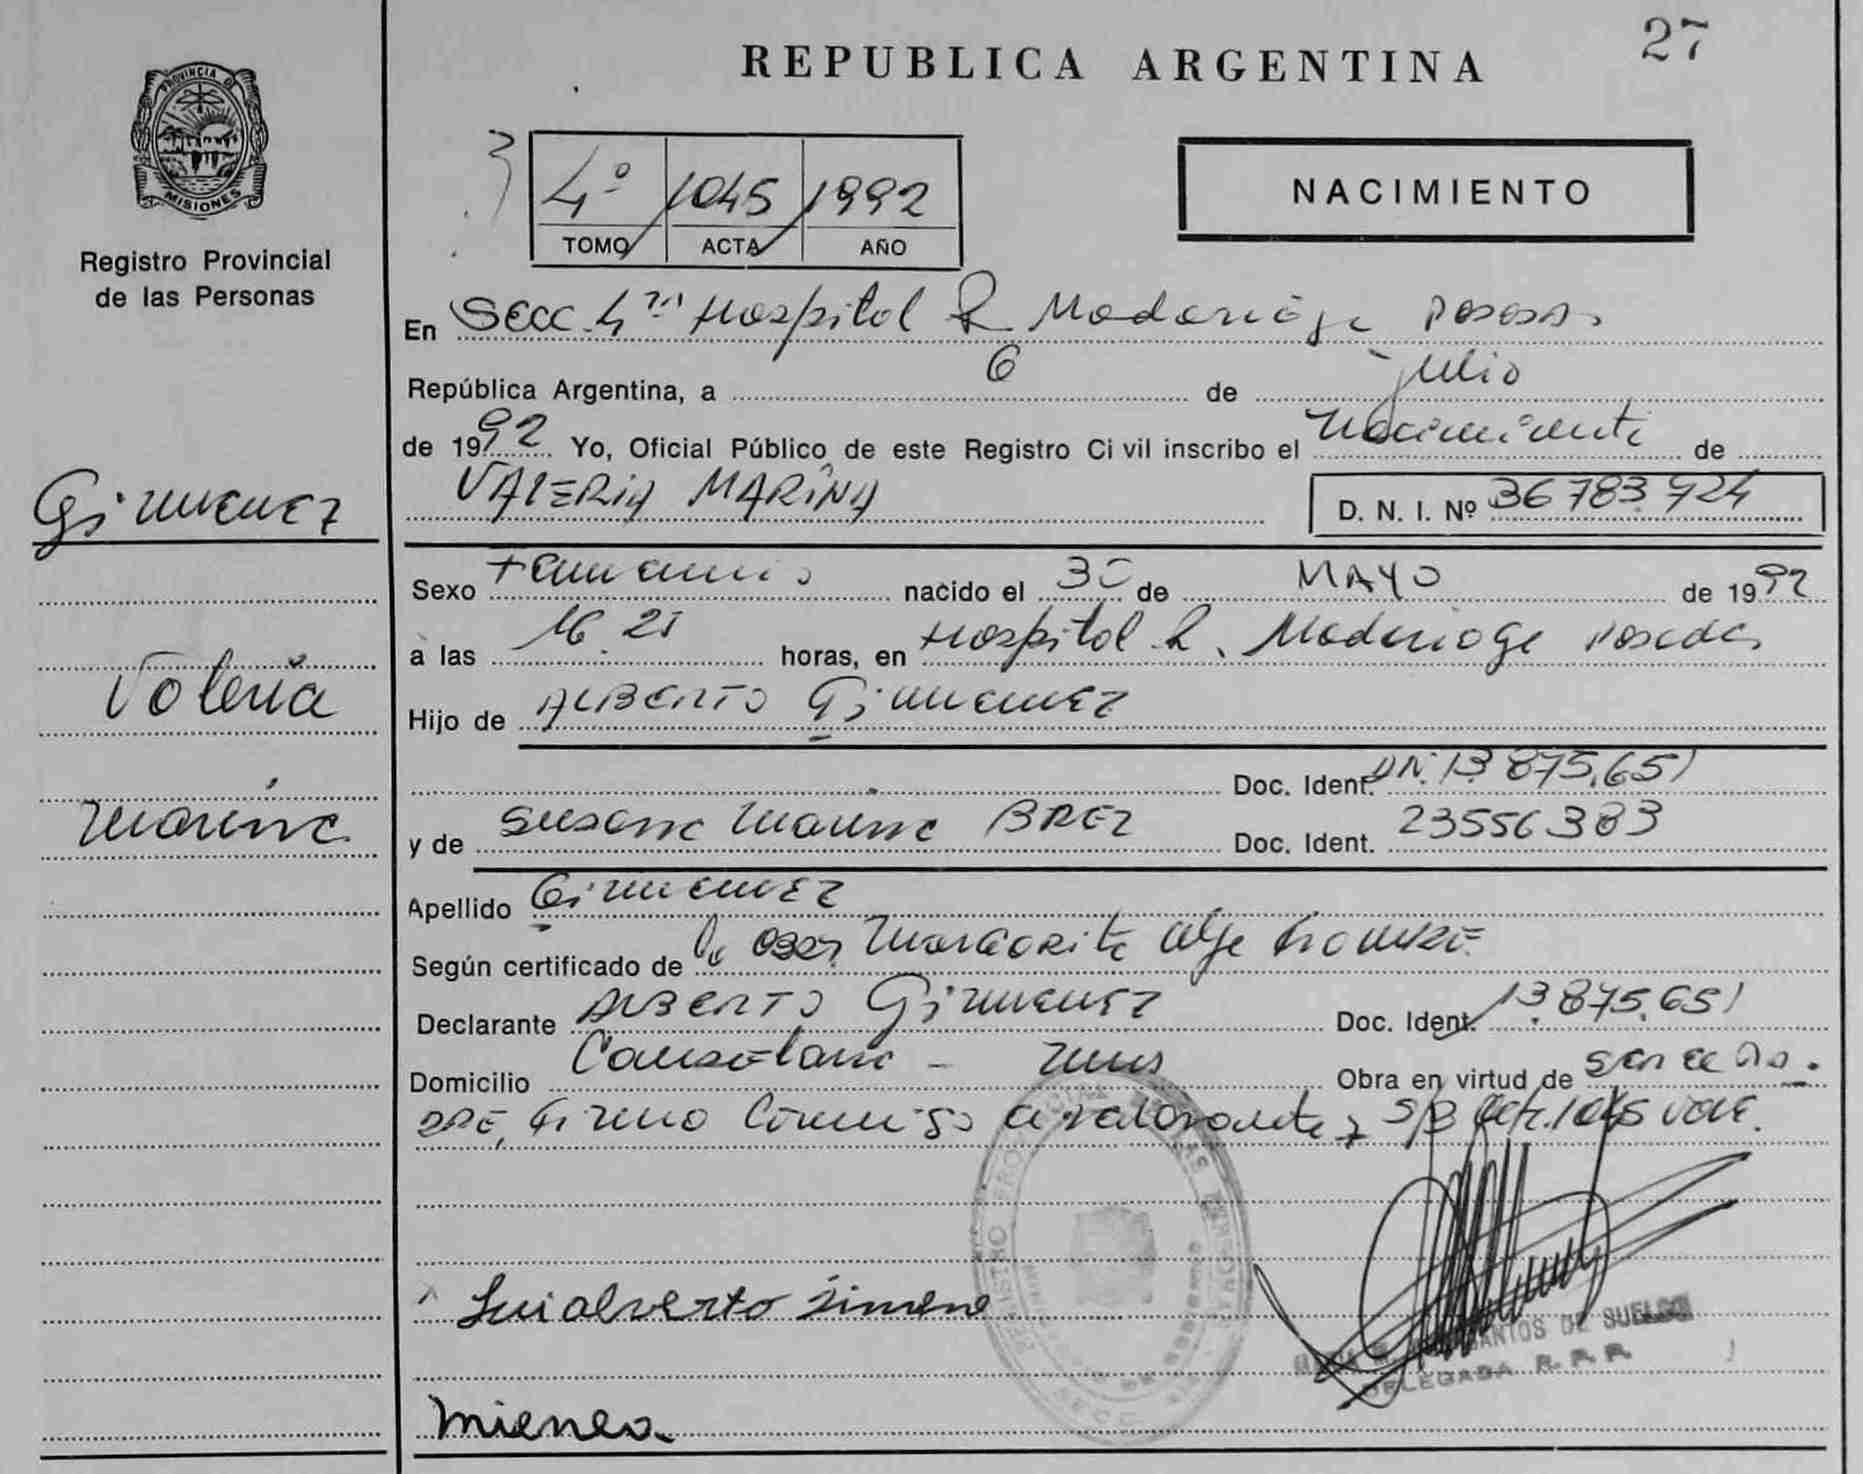 27
REPUBLICA ARGENTINA
PROVINCIA D
MISIONES
Registro Provincial
de las Personas
4º 1045 1992
TOMO ACTA AÑO
NACIMIENTO
En Secc. 4ta Hospital R. Madariaga Posadas
República Argentina, a 6 de julio
de 1992 Yo, Oficial Público de este Registro Civil inscribo el Nacimiento de
VALERIA MARINA D. N. I. Nº 36783924
Gimenez
Sexo Femenino nacido el 30 de MAYO de 1992
a las 16 25 horas, en Hospital R. Madariaga Posadas
Valeria
Hijo de ALBERTO Gimenez
Doc. Ident. DNI. 13.875.651
Marina
y de Susana Marina Doc. Ident. 23556383
Apellido Gimenez
Según certificado de la Margarita
Declarante ALBERTO Gimenez Doc. Ident. 13.875.651
Domicilio Obra en virtud de
Firma Conmigo el declarante y s/b 1045 vale.
Luialverto Jimene
DE SUELDO
DELEGADA R. P. P.